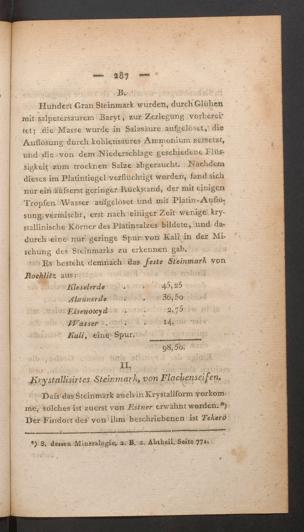 — 287 —
B.
Hundert Gran Steinmark wurden, durch Glühen
mit salpetersaurem Baryt, zur Zerlegung vorberei-
tet; die Masse wurde in Salzsäure aufgelöset, die
Auflösung durch kohlensaures Ammonium zersetzt,
und die von dem Niederschlage geschiedene Flüs-
sigkeit zum trocknen Salze abgeraucht. Nachdem
dieses im Platintiegel verflüchtigt worden, fand sich
nur ein äußerst geringer Rückstand, der mit einigen
Tropfen Wasser aufgelöset und mit Platin-Auflö-
sung vermischt, erst nach einiger Zeit wenige kry-
stallinische Körner des Platinsalzes bildete, und da-
durch eine nur geringe Spur von Kali in der Mi-
schung des Steinmarks zu erkennen gab.
Es besteht demnach das feste Steinmark von
Rochlitz aus:
Kieselerde . . 45,25
Alaunerde . . 36,50
Eisenoxyd . . 2,75
Wasser . . . 14,
Kali, eine Spur.
98,50.
II.
Krystallisirtes Steinmark, von Flachenseifen.
Daß das Steinmark auch in Krystallform vorkom-
me, solches ist zuerst von Estner erwähnt worden.*)
Der Findort des von ihm beschriebenen ist Tekerö
*) S. dessen Mineralogie, 2. B. 2. Abtheil. Seite 771.